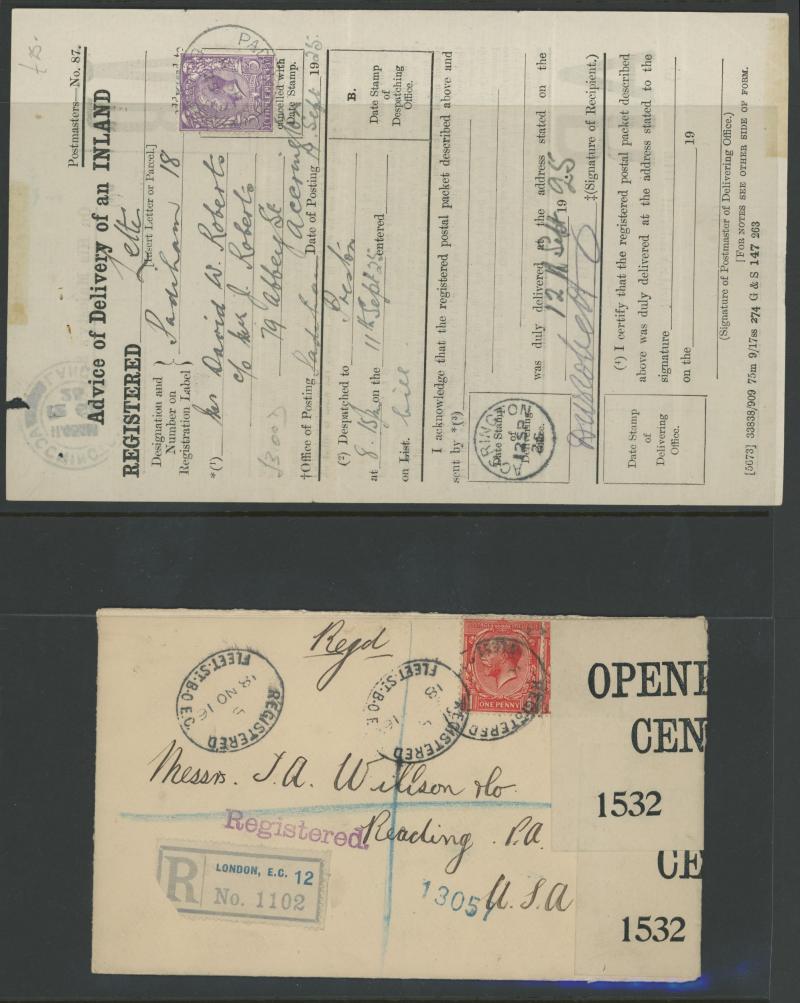 £25-
Postmasters—No. 87.
Advice of Delivery of an INLAND
REGISTERED Letter
[Insert Letter or Parcel.]
Designation and
Number on
Registration Label
Padiham 18
*(¹) Mr David W. Roberts
c/o Mrs J. Roberts
79 Abbey St
Accrington
cancelled with
Date Stamp.
†Office of Posting Padiham Date of Posting 11 Sept 1925.
(²) Despatched to Preston
at 8.15 on the 11th Sept 25 entered
on List. bill
B.
Date Stamp
of
Despatching
Office.
I acknowledge that the registered postal packet described above and
sent by *(³)
was duly delivered at the address stated on the
12th Sept 1925
‡(Signature of Recipient.)
Date Stamp
of
Delivering
Office.
ACCRINGTON
12 SP
25
(⁴) I certify that the registered postal packet described
above was duly delivered at the address stated to the
signature
on the 19
(Signature of Postmaster of Delivering Office.)
Date Stamp
of
Delivering
Office.
[FOR NOTES SEE OTHER SIDE OF FORM.
[5673] 33838/909 75m 9/17ss 274 G & S 147 263
Regd
REGISTERED
5
18 NO 16
FLEET.ST.B.O.E.C.
REGISTERED
5
18 16
FLEET.ST.B.O.E.C.
REGISTERED
FLEET
ONE PENNY
Messrs. J. A. Willson & Co.
Registered.
Reading. P.A.
U.S.A
13057
R
LONDON, E.C. 12
No. 1102
OPENE
CEN
1532
CE
1532